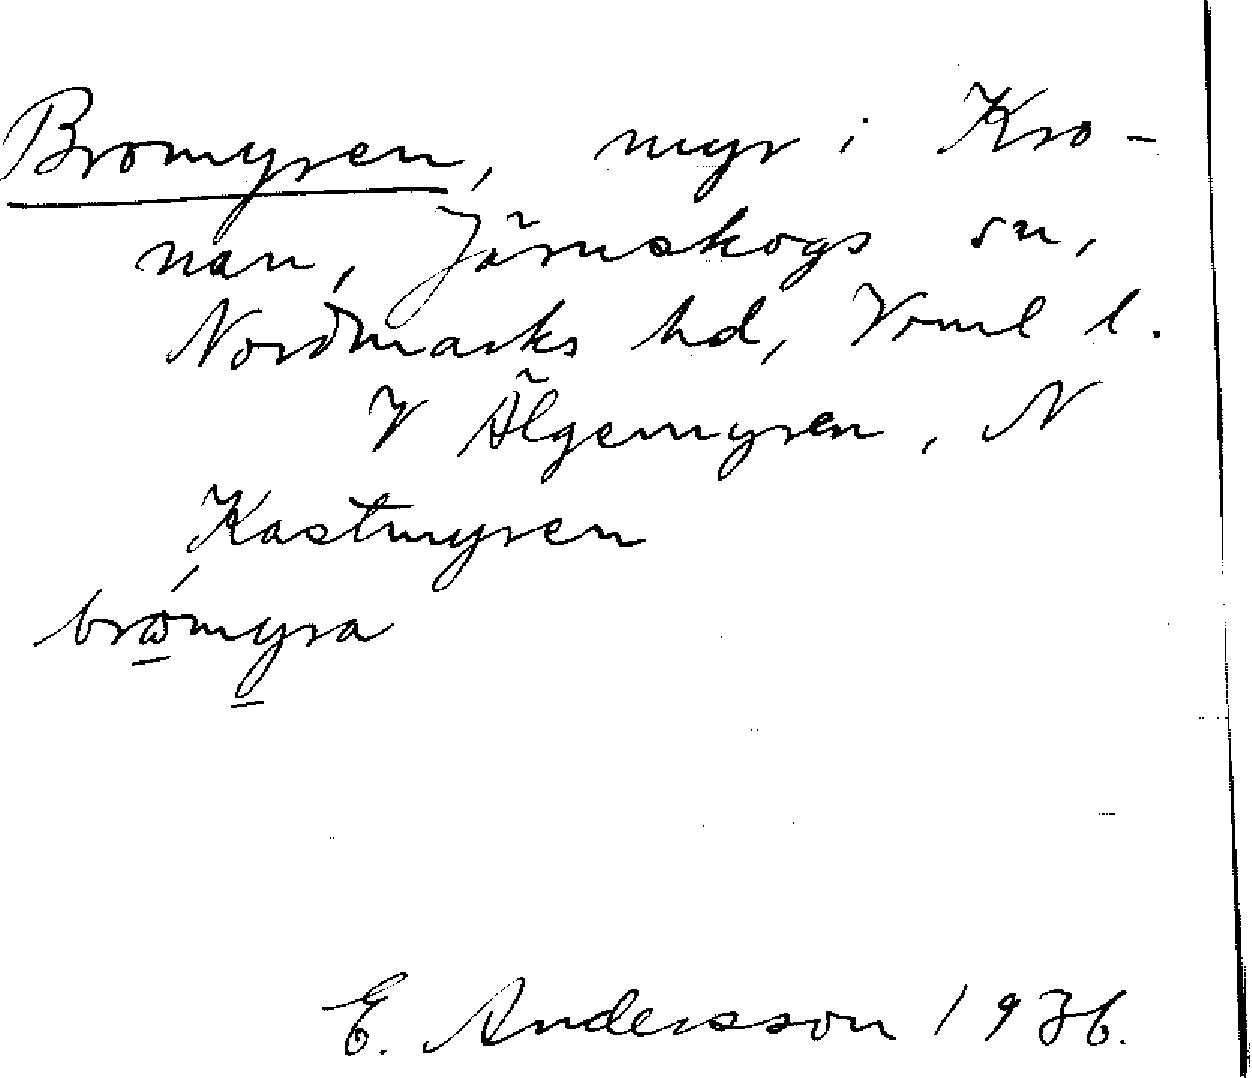 Bromyren, myr i Kro-
nan, Järnskogs sn,
Nordmarks hd, Vrml l.
V Älgemyren, N
Kastmyren
brωmyra
E. Andersson 1936.